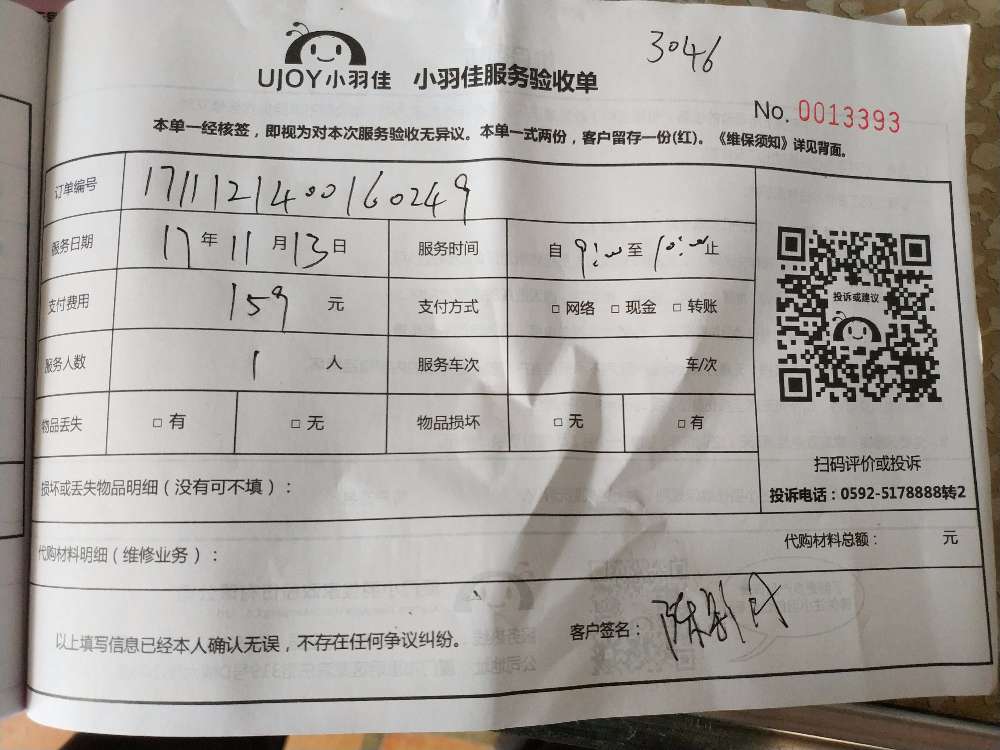 3046
UJOY小羽佳 小羽佳服务验收单
No. 0013393
本单一经核签，即视为对本次服务验收无异议。本单一式两份，客户留存一份(红)。《维保须知》详见背面。
订单编号 1711121400160249
服务日期 17年11月13日 服务时间 自9:00至10:00止
支付费用 159元 支付方式 □网络 □现金 □转账
投诉或建议
服务人数 1人 服务车次 车/次
物品丢失 □有 □无 物品损坏 □无 □有
扫码评价或投诉
损坏或丢失物品明细(没有可不填)：
投诉电话：0592-5178888转2
代购材料明细(维修业务)： 代购材料总额： 元
以上填写信息已经本人确认无误，不存在任何争议纠纷。 客户签名：陈